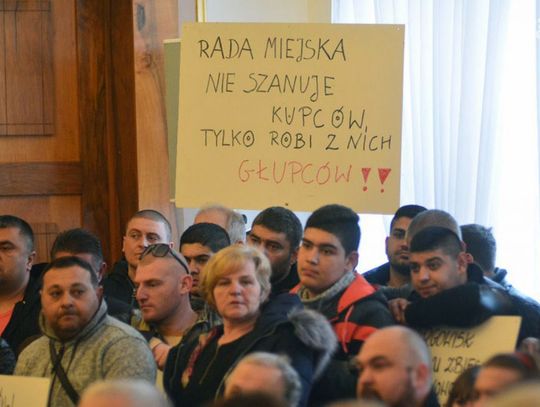 RADA MIEJSKA
NIE SZANUJE
KUPCÓW,
TYLKO ROBI Z NICH
GŁUPCÓW!!